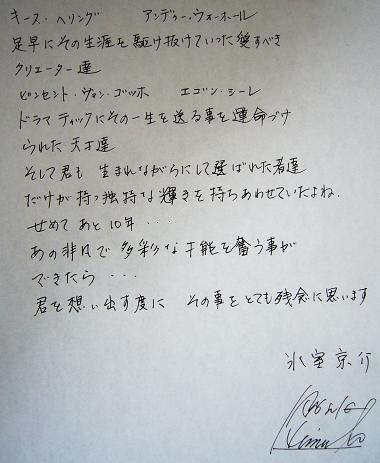 キース・ヘリング　アンディー・ウォーホール
足早にその生涯を駆け抜けていった愛すべき
クリエーター達
ビンセント・ヴァン・ゴッホ　エゴン・シーレ
ドラマティックにその一生を送る事を運命づけ
られた天才達
そして君も 生まれながらにして選ばれた者達
だけが持つ独特な輝きを持ちあわせていたよね.
せめてあと10年・・・
あの非凡で多彩な才能を奮う事が
できたら・・・
君を想い出す度に その事をとても残念に思います
氷室京介